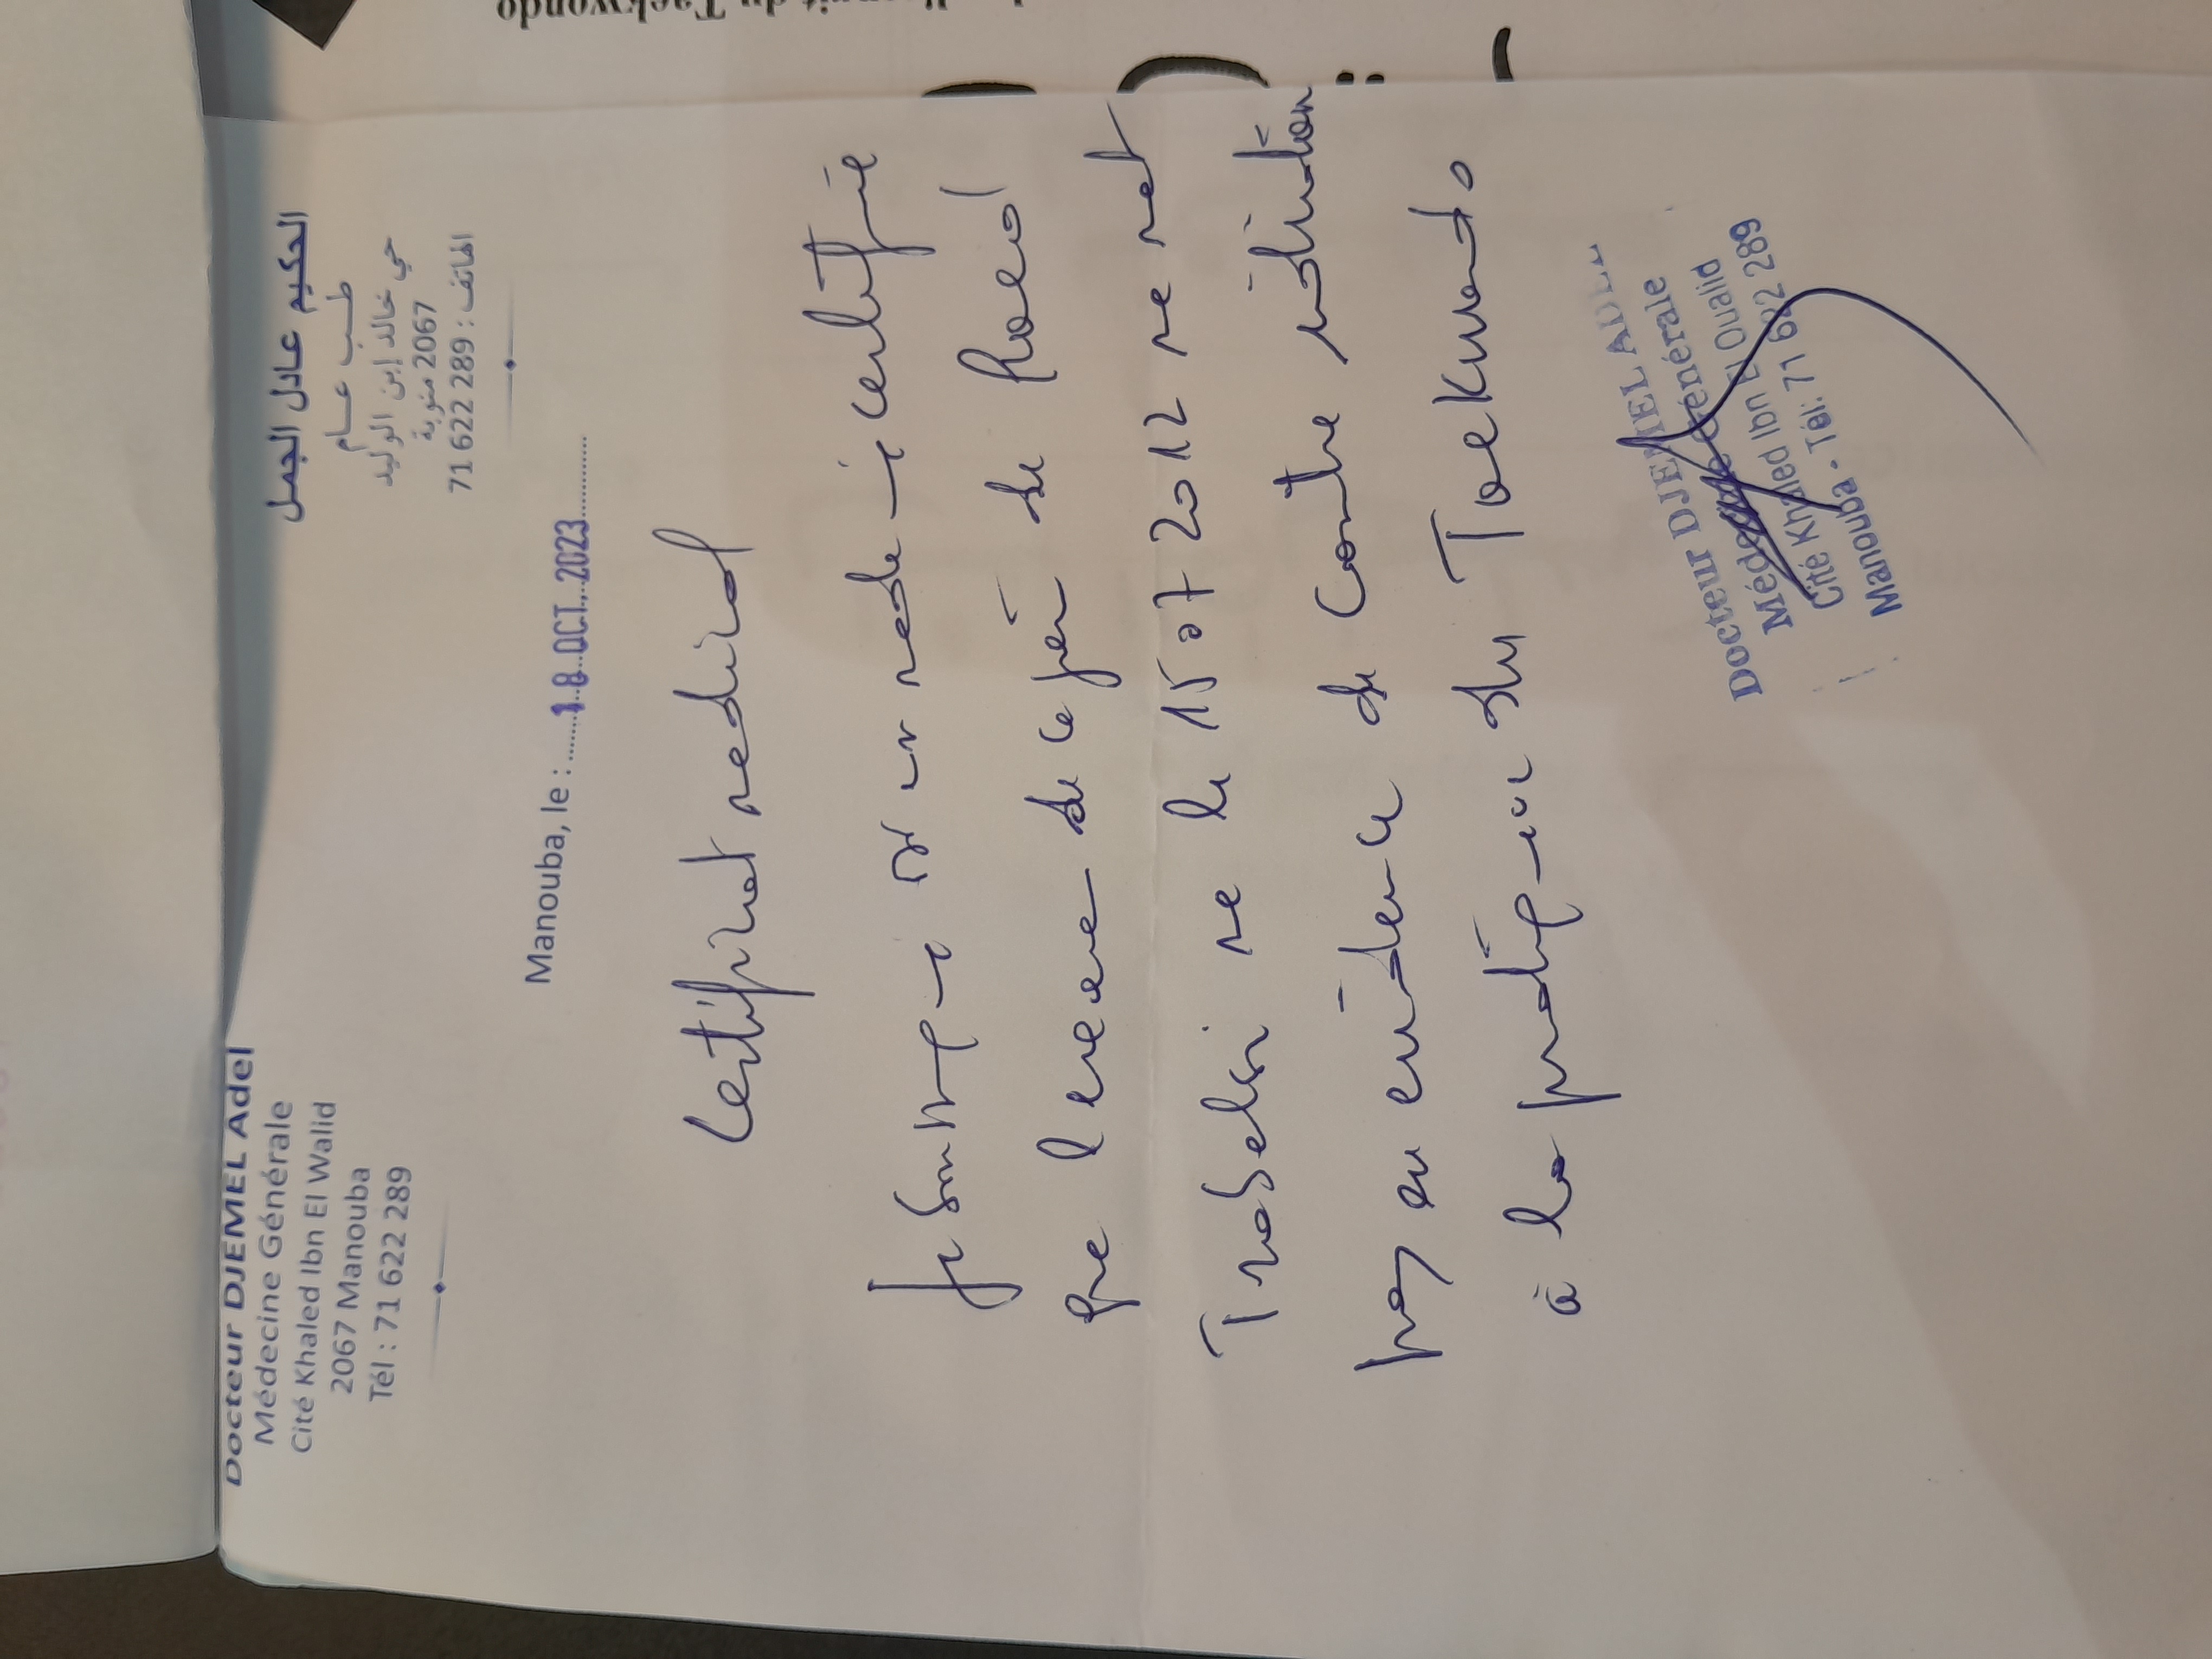 Docteur DJEMEL Adel
Médecine Générale
Cité Khaled Ibn El Walid
2067 Manouba
Tél : 71 622 289
الحكيم عادل الجمل
طب عام
حي خالد إبن الوليد
2067 منوبة
الهاتف : 71 622 289
Manouba, le : 18 OCT. 2023
Certificat medical
Je soussigné Dr en medecine certifie
que l'examen de ce jour de
Trabelsi né le 15 07 2012 ne met
pas en evidence de contre indication
à la pratique du Taekwondo
Docteur DJEMEL ADEL
Médecine Générale
Cité Khaled Ibn El Oualid
Manouba - Tél: 71 622 289
du Taekwondo